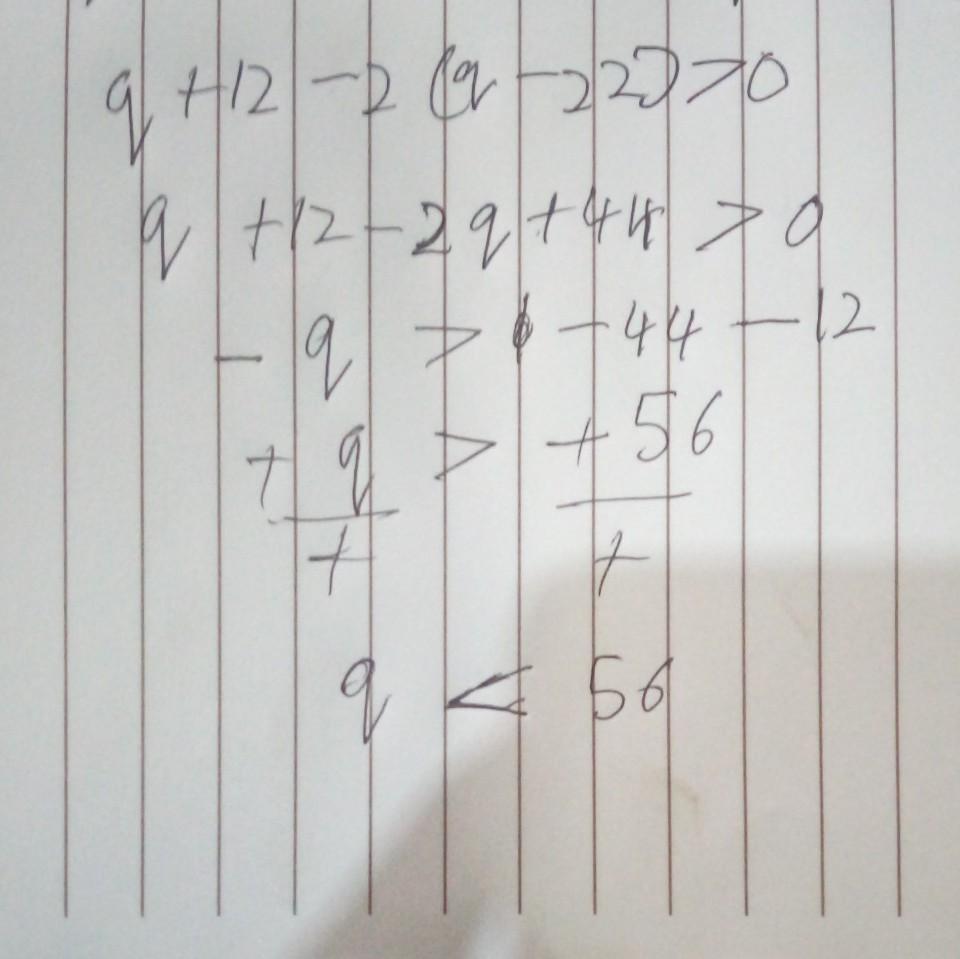 q +12 -2 (q -22) >0
q +12 -2q +44 > 0
- q > -44 -12
+ q > + 56
+ +
q < 56